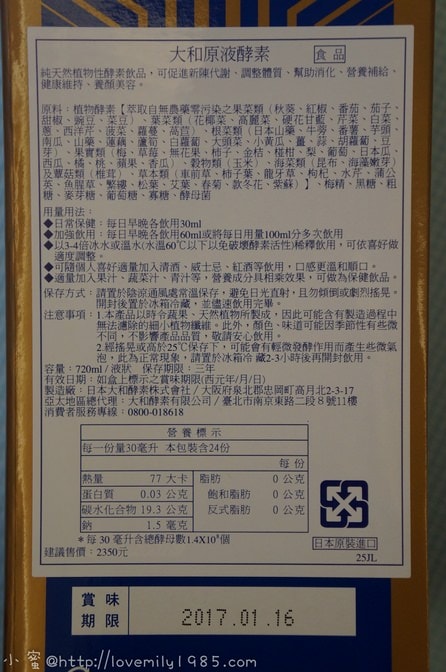 大和原液酵素 食品
純天然植物性酵素飲品，可促進新陳代謝、調整體質、幫助消化、營養補給、
健康維持、養顏美容。
原料：植物酵素【萃取自無農藥零污染之果菜類（秋葵、紅椒、番茄、茄子、
甜椒、豌豆、菜豆）、葉菜類（花椰菜、高麗菜、硬花甘藍、芹菜、白菜
蔥、西洋芹、菠菜、蘿蔓、萵苣）、根菜類（日本山藥、牛蒡、番薯、芋頭
南瓜、山藥、蓮藕、蘆筍、白蘿蔔、大頭菜、小黃瓜、薑、蒜、胡蘿蔔、豆
芽）、果實類（梅、草莓、無花果、柿子、金桔、椪柑、梨、葡萄、日本瓜
西瓜、橘、桃、蘋果、香瓜）、穀物類（玉米）、海菜類（昆布、海藻嫩芽）
及蕈菇類（椎茸）、草本類（車前草、柿子葉、龍牙草、枸杞、水芹、蒲公
英、魚腥草、繁縷、松葉、艾葉、春菊、款冬花、紫蘇）】、梅精、黑糖、粗
糖、麥芽糖、葡萄糖、寡糖、酵母菌
用量用法：
◆日常保健：每日早晚各飲用30ml
◆加強飲用：每日早晚各飲用60ml或將每日用量100ml分多次飲用
◆以3-4倍冰水或溫水(水溫60℃以下以免破壞酵素活性)稀釋飲用，可依喜好做
適度調整。
◆可隨個人喜好適量加入清酒、威士忌、紅酒等飲用，口感更溫和順口。
◆適量加入果汁、蔬菜汁、青汁等，營養成分具相乘效果，可做為保健飲品。
保存方式：請置於陰涼通風處常溫保存，避免日光直射，且勿傾倒或劇烈搖晃。
開封後置於冰箱冷藏，並儘速飲用完畢。
注意事項：1.本產品以時令蔬果、天然植物所製成，因此可能含有製造過程中
無法濾除的細小植物纖維。此外，顏色、味道可能因季節性有些微
不同，不影響產品品質，敬請安心飲用。
2.經搖晃或高於25℃保存下，可能會有輕微發酵作用而產生些微氣
泡，此為正常現象，請置於冰箱冷 藏2-3小時後再開封飲用。
容量：720ml／液狀 保存期限：三年
有效日期：如盒上標示之賞味期限(西元年/月/日)
製造廠：日本大和酵素株式會社／大阪府泉北郡忠岡町高月北2-3-17
亞太地區總代理：大和酵素有限公司／臺北市南京東路二段８號11樓
消費者服務專線：0800-018618
營養標示
每一份量30毫升 本包裝含24份
每份
熱量 77 大卡 脂肪 0 公克
蛋白質 0.03 公克 飽和脂肪 0 公克
碳水化合物 19.3 公克 反式脂肪 0 公克
鈉 1.5 毫克
＊每 30 毫升含總酵母數1.4X10⁸個
建議售價：2350元
日本原裝進口
25JL
賞味
期限
2017.01.16
小蜜@http://lovemily1985.com